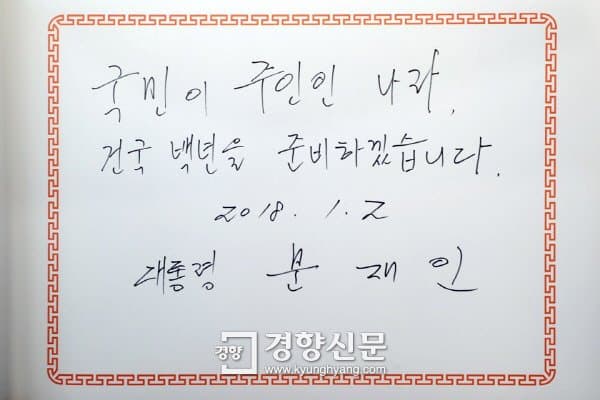 국민이 주인인 나라,
건국 백년을 준비하겠습니다.
2018. 1. 2
대통령 문 재 인
경향 경향신문
www.kyunghyang.com